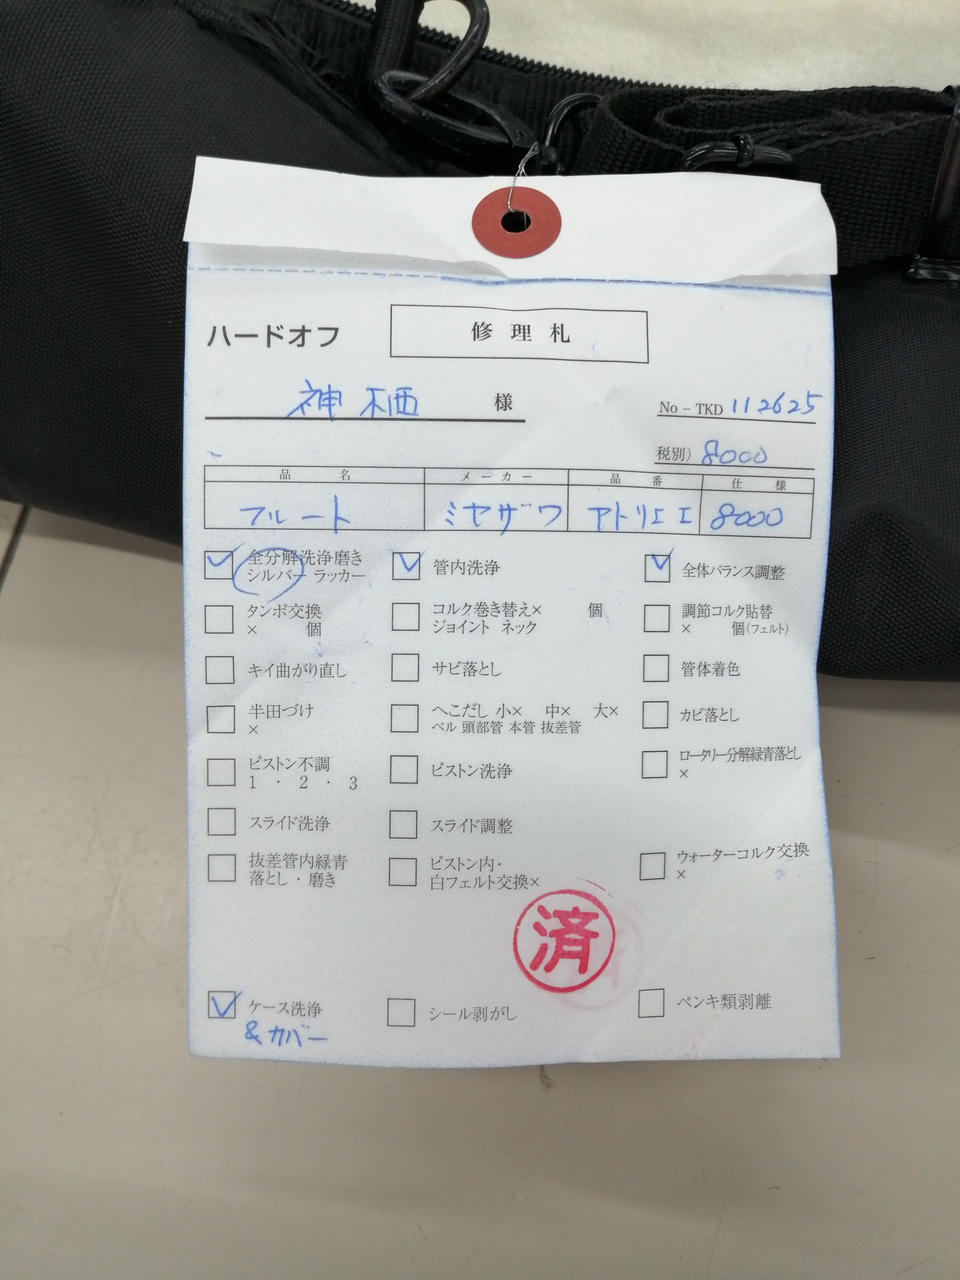 ハードオフ
修理札
神栖 様
No－TKD 112625
税別) 8000
品名 メーカー 品番 仕様
フルート ミヤザワ アトリエ I 8000
全分解洗浄磨き
シルバー ラッカー
管内洗浄
全体バランス調整
タンポ交換
× 個
コルク巻き替え× 個
ジョイント ネック
調節コルク貼替
× 個(フェルト)
キイ曲がり直し
サビ落とし
管体着色
半田づけ
×
へこだし 小× 中× 大×
ベル 頭部管 本管 抜差管
カビ落とし
ピストン不調
1 ・ 2 ・ 3
ピストン洗浄
ロータリー分解緑青落とし
×
スライド洗浄
スライド調整
抜差管内緑青
落とし・磨き
ピストン内・
白フェルト交換×
ウォーターコルク交換
×
済
ケース洗浄
&カバー
シール剥がし
ペンキ類剥離